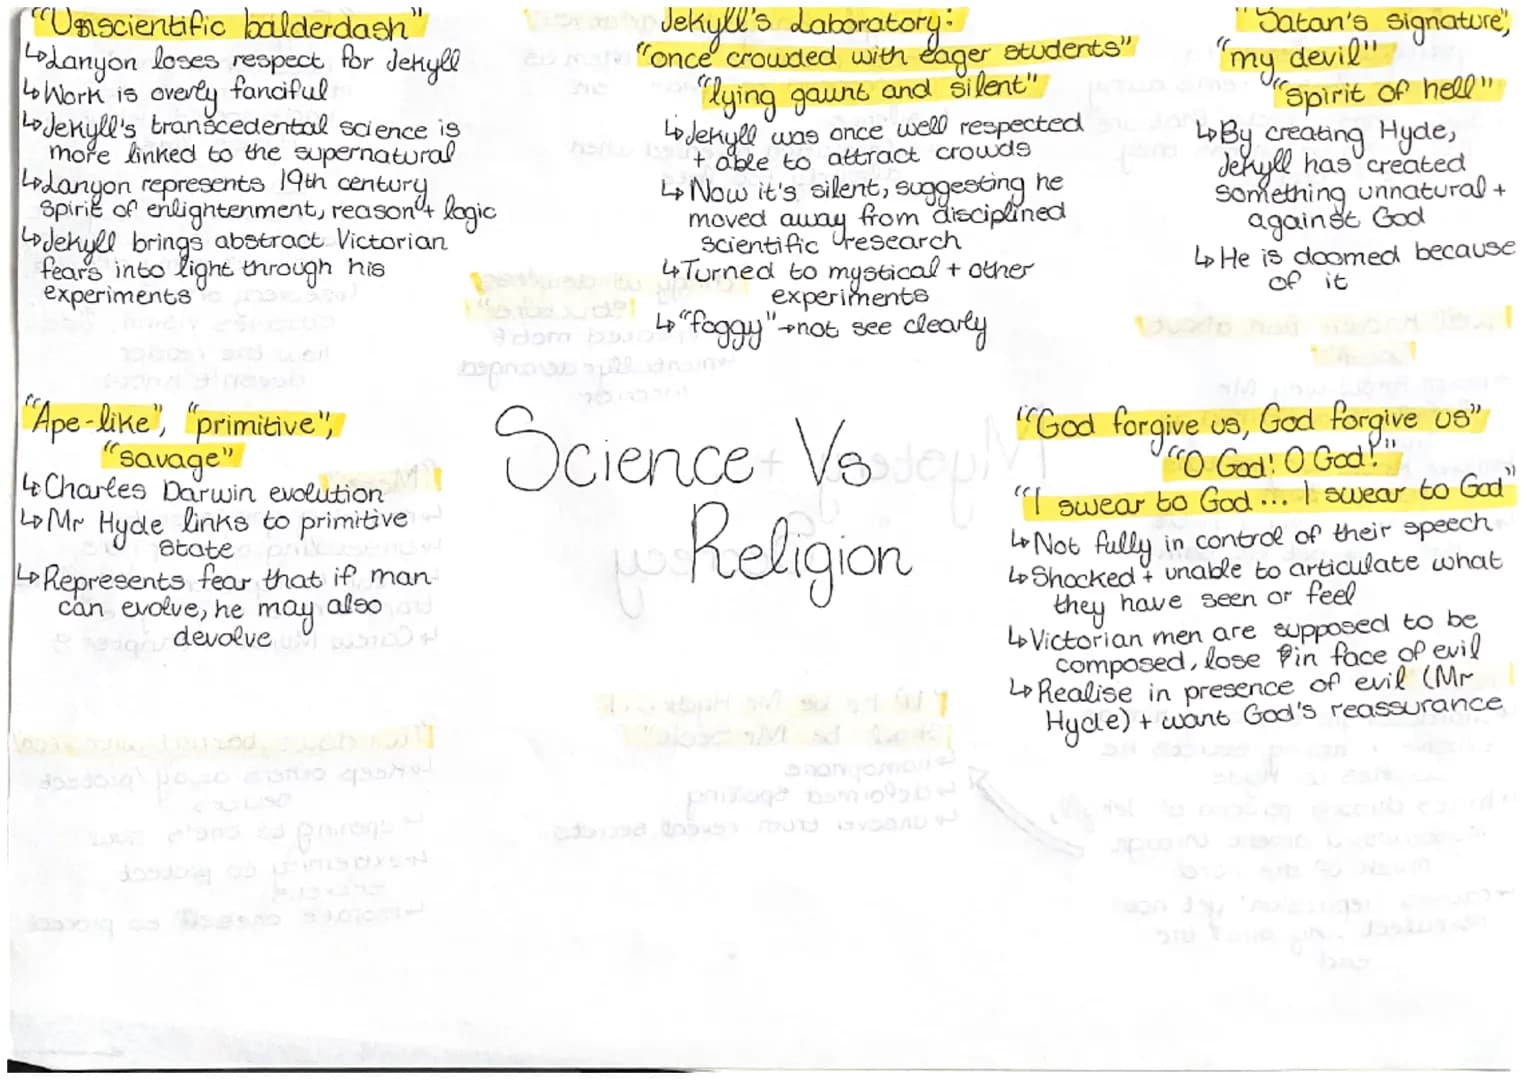 "Unscientific balderdash"
↳Lanyon loses respect for Jekyll
↳Work is overly fanciful
↳Jekyll's transcedental science is
more linked to the supernatural
↳Lanyon represents 19th century
spirit of enlightenment, reason + logic
↳Jekyll brings abstract Victorian
fears into light through his
experiments
Jekyll's Laboratory:
"once crowded with eager students"
"lying gaunt and silent"
↳Jekyll was once well respected
+ able to attract crowds
↳Now it's silent, suggesting he
moved away from disciplined
scientific research
↳Turned to mystical + other
experiments
↳"foggy"→not see clearly
"Satan's signature",
"my devil"
"spirit of hell"
↳By creating Hyde,
Jekyll has created
something unnatural +
against God
↳He is doomed because
of it
"Ape-like", "primitive",
"savage"
↳Charles Darwin evolution
↳Mr Hyde links to primitive
state
↳Represents fear that if man
can evolve, he may also
devolve
Science Vs
Religion
"God forgive us, God forgive us"
"O God! O God!"
"I swear to God... I swear to God"
↳Not fully in control of their speech
↳Shocked + unable to articulate what
they have seen or feel
↳Victorian men are supposed to be
composed, lose in face of evil
↳Realise in presence of evil (Mr
Hyde) + want God's reassurance